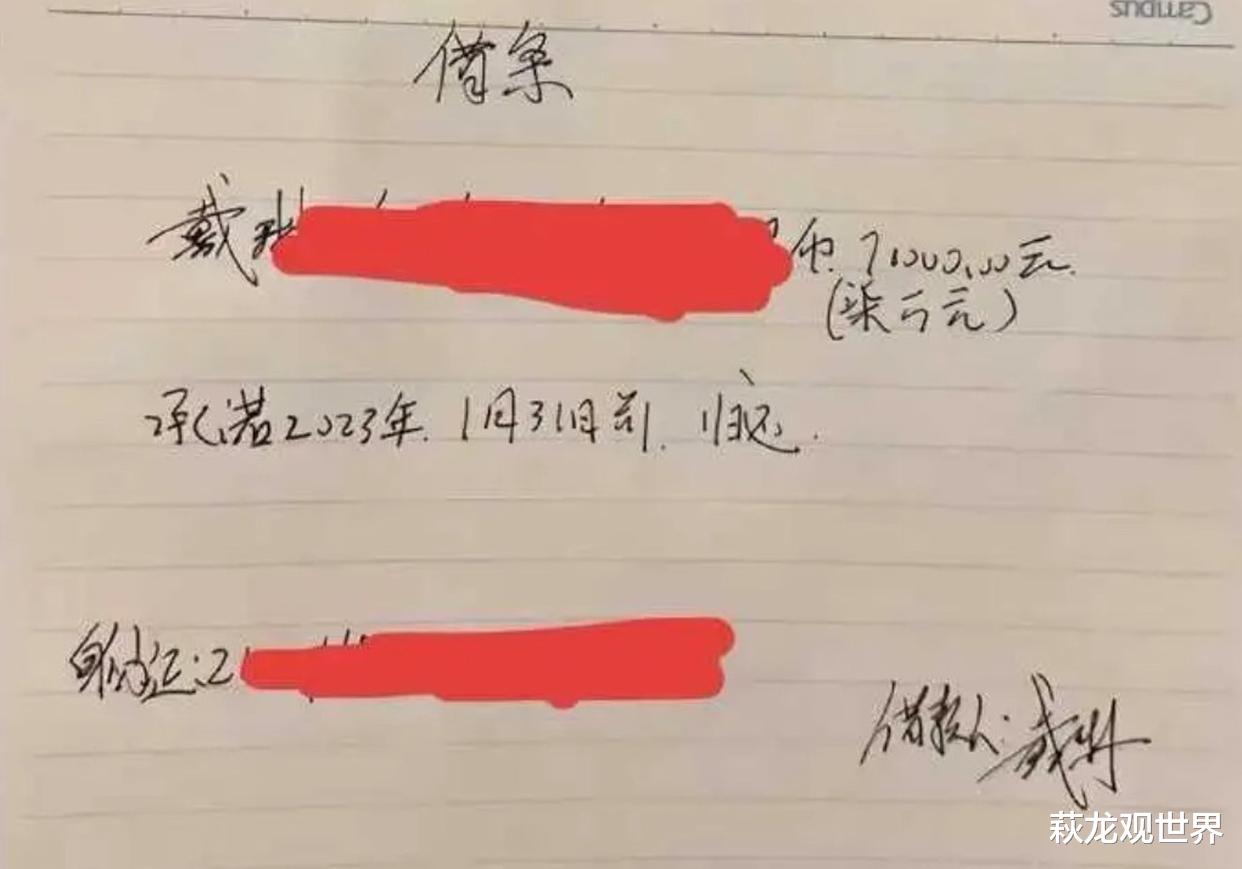 Campus
借条
戴 币 7000.00元.
(柒仟元)
承诺2023年.1月31日前.归还.
身份证:2
借款人:戴
萩龙观世界